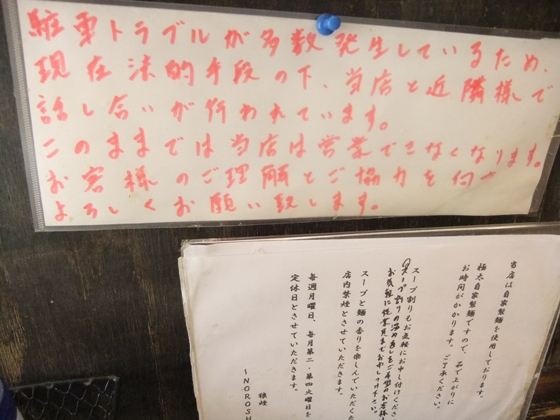 駐車トラブルが多数発生しているため、
現在法的手段の下、当店と近隣様で
話し合いが行われています。
このままでは当店は営業できなくなります。
お客様のご理解とご協力を何
よろしくお願い致します。
当店は自家製麺を使用しております。
極太自家製麺ですので、茹で上がりに
お時間がかかります。ご了承ください。
スープ割りもお気軽にお申し付けくださ
スープと麺の香りを楽しんでいただくた
店内禁煙とさせていただきます。
毎週月曜日、毎月第二・第四火曜日を
定休日とさせていただきます。
狼煙
INOROSH